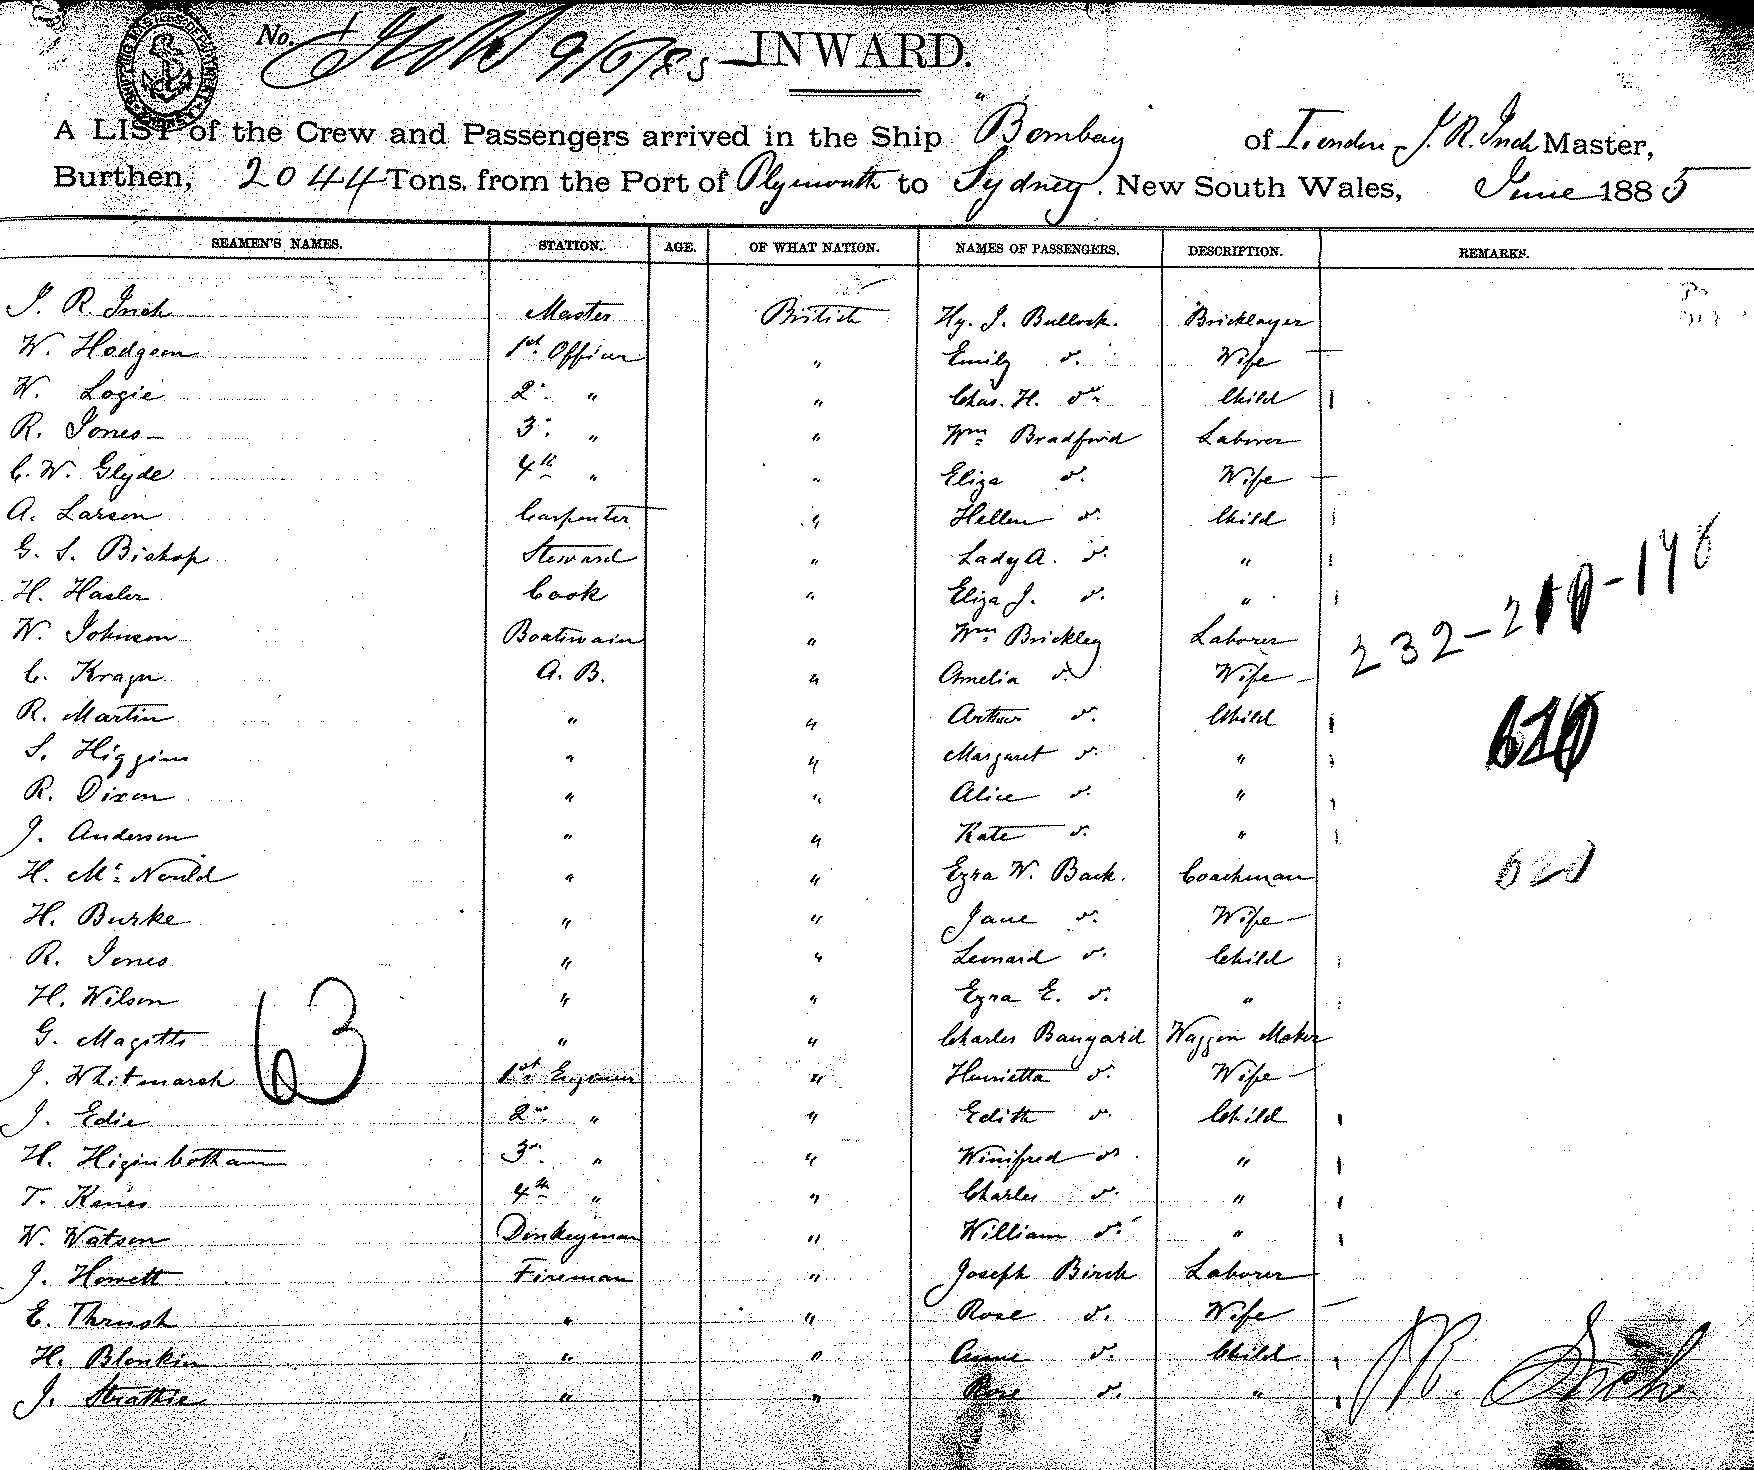 No. 9/6/85 INWARD.
A LIST of the Crew and Passengers arrived in the Ship "Bombay of London J. R. Inch Master,
Burthen, 2044 Tons, from the Port of Plymouth to Sydney. New South Wales, June 1885
SEAMEN'S NAMES. STATION. AGE. OF WHAT NATION. NAMES OF PASSENGERS. DESCRIPTION. REMARKS.
J. R. Inch Master British Hy. J. Bullock. Bricklayer
W. Hodgson 1st Officer " Emily do. Wife
W. Logie 2d " " Chas. H. do. Child
R. Jones 3d " " Wm Bradford Laborer
C. W. Glyde 4th " " Eliza do. Wife
A. Larson Carpenter " Hellen do. Child
G. S. Bishop Steward " Lady A. do. "
H. Hasler Cook " Eliza J. do. "
W. Johnson Boatswain " Wm Brickley Laborer 232-210-178
C. A. B. " Amelia do. Wife
R. Martin " " Arthur do. Child
S. Higgins " " Margaret do. "
R. Dixon " " Alice do. "
J. Anderson " " Kate do. "
H. " " Ezra W. Back. Coachman 620
H. Burke " " Jane do. Wife
R. Jones " " Leonard do. Child
H. Wilson " " Ezra E. do. "
G. Magitts " " Charles Bangard Waggon Maker
J. Whitmarsh 63 1st Engineer " Henrietta do. Wife
J. Edie 2nd " " Edith do. Child
H. Higinbotham 3rd " " Winifred do "
T. 4th " " Charles do. "
W. Watson Donkeyman " William do. "
J. Howett Fireman " Joseph Birch Laborer
E. Thrush " " Rose do. Wife
H. Blenkin " " Annie do. Child
J. Strathie " " Rose do. " J R. Inch